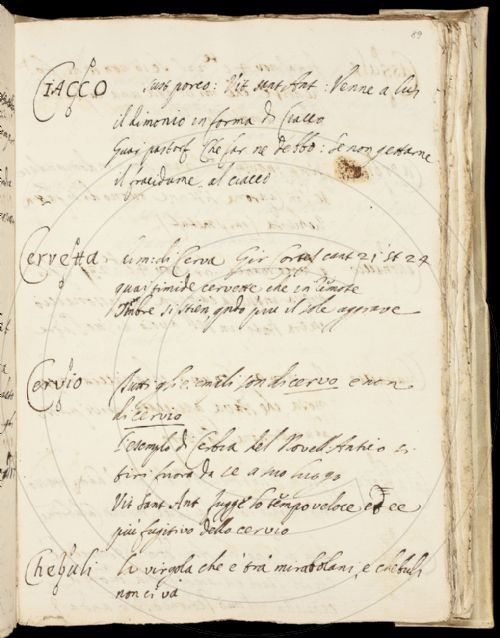 89
CIACCO sust porco: Vit. sant Ant: Venne a lui
il dimonio in forma di Ciacco
Guai pastori Che far ne debbo: se non gettarne
il fracidume al ciacco
Cervetta dim: di Cerva Gir Cortes cant 21 st 24
quai timide cervette che in rimote
Ombre si stien, qndo piu il sole aggrava
Cervio tutti gli esempli son di cervo e non
di cervio
l'esemplo di Cerbia del Novell Antico si
tiri fuora da se a suo luogo
Vit Sant Ant fugge lo tempo veloce ed è
più fugitivo dello cervio
Chebuli la virgola che è tra mirabolani, e chebuli
non ci va